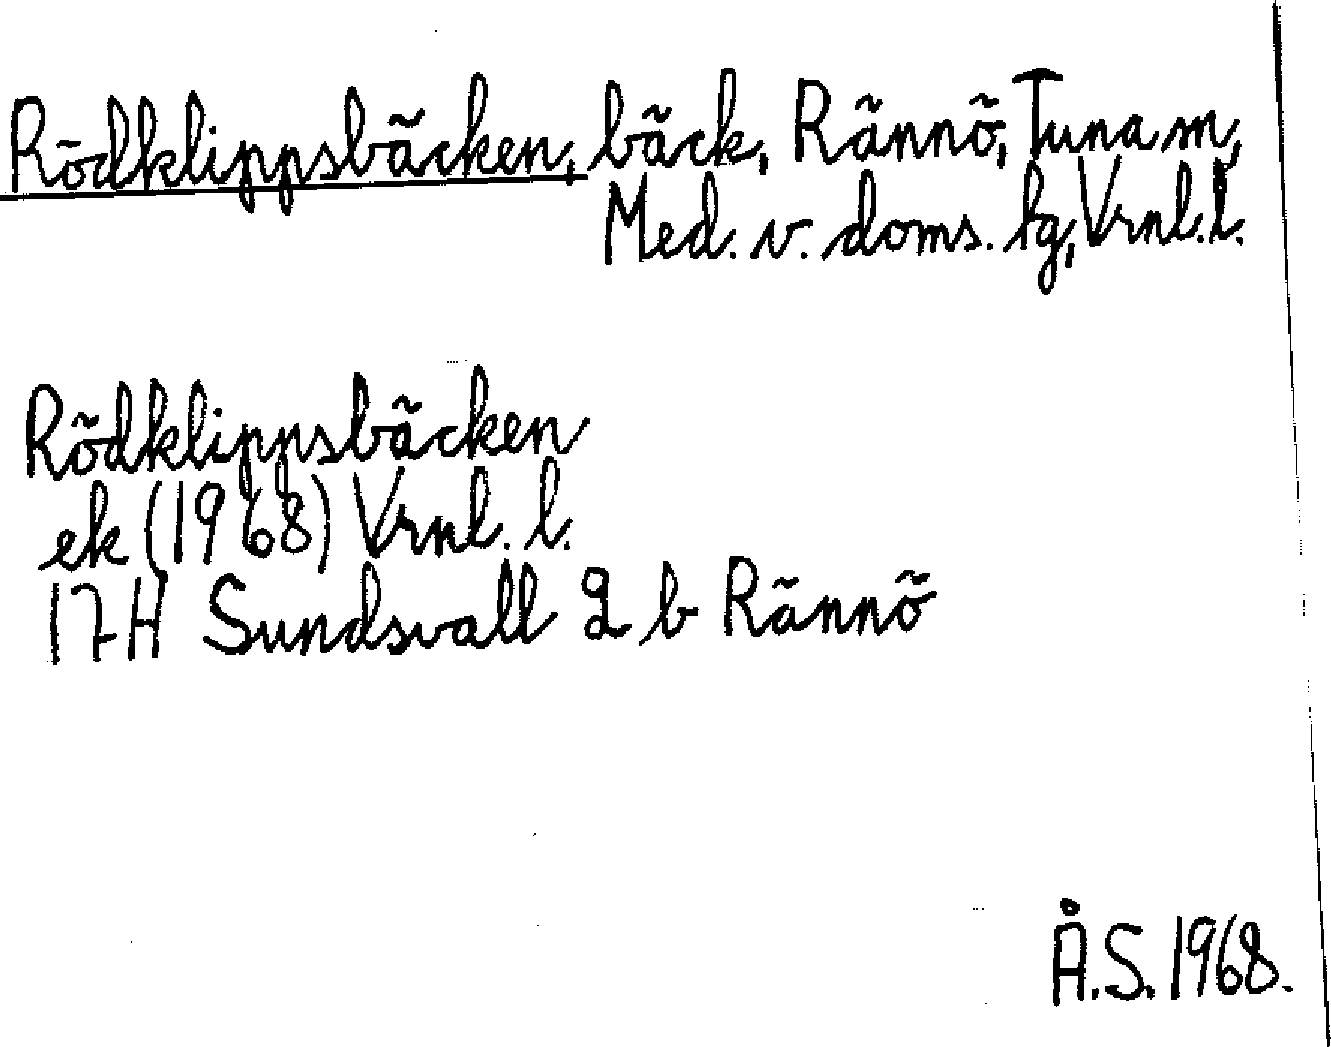 Rödklippsbäcken, bäck, Rännö, Tuna sn,
Med. v. doms. fg, Vrnl. l.
Rödklippsbäcken
ek (1968) Vrnl. l.
17H Sundsvall 2 b Rännö
Å.S. 1968.